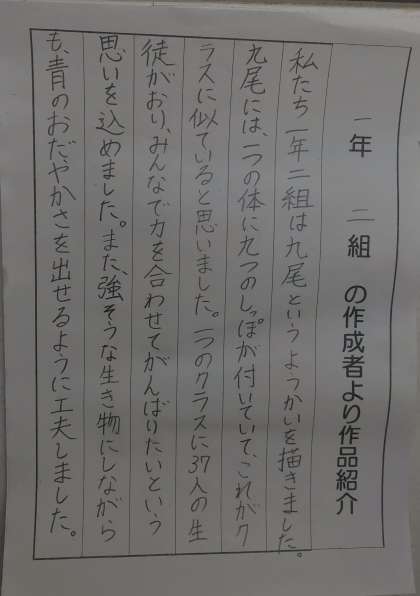 一年 二組 の作成者より作品紹介
私たち一年二組は九尾というようかいを描きました。
九尾には、一つの体に九つのしっぽが付いていて、これがク
ラスに似ていると思いました。一つのクラスに37人の生
徒がおり、みんなで力を合わせてがんばりたいという
思いを込めました。また、強そうな生き物にしながら
も、青のおだやかさを出せるように工夫しました。